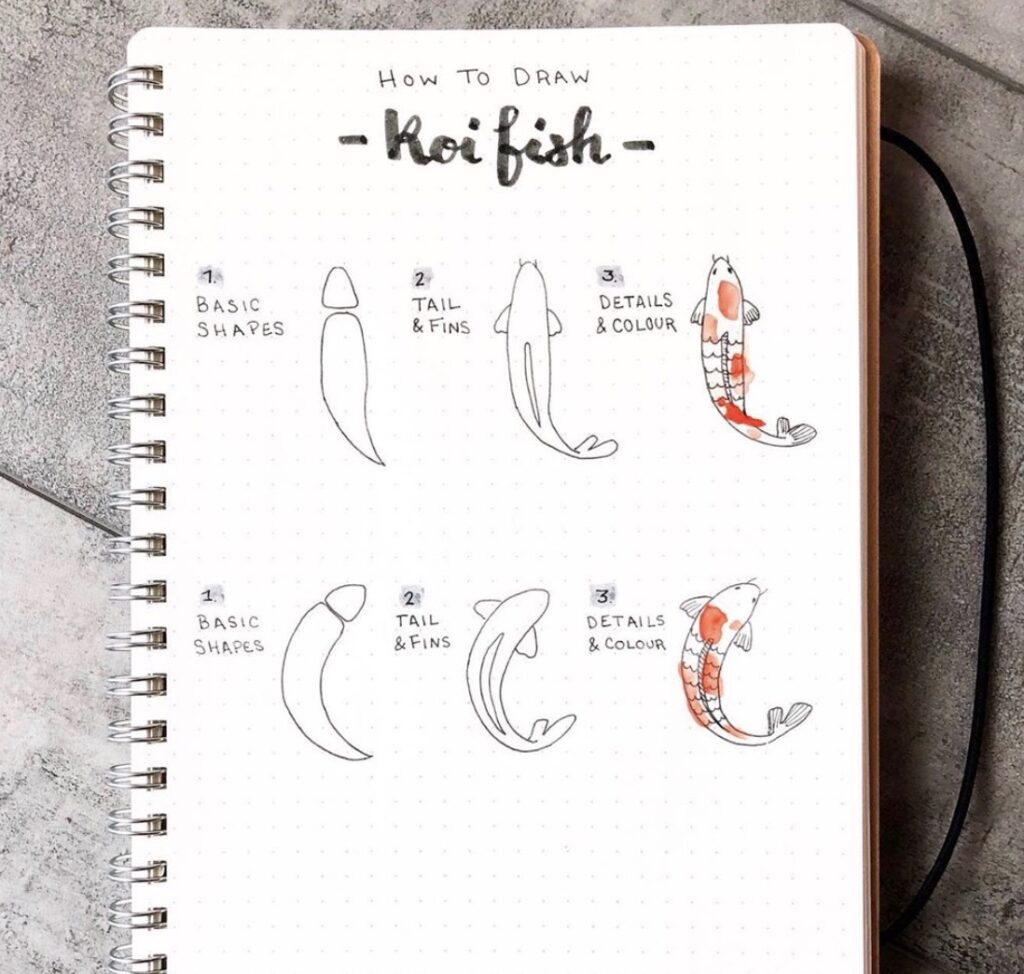 HOW TO DRAW
- Koi fish -
1.
BASIC
SHAPES
2
TAIL
& FINS
3.
DETAILS
& COLOUR
1.
BASIC
SHAPES
2
TAIL
& FINS
3.
DETAILS
& COLOUR